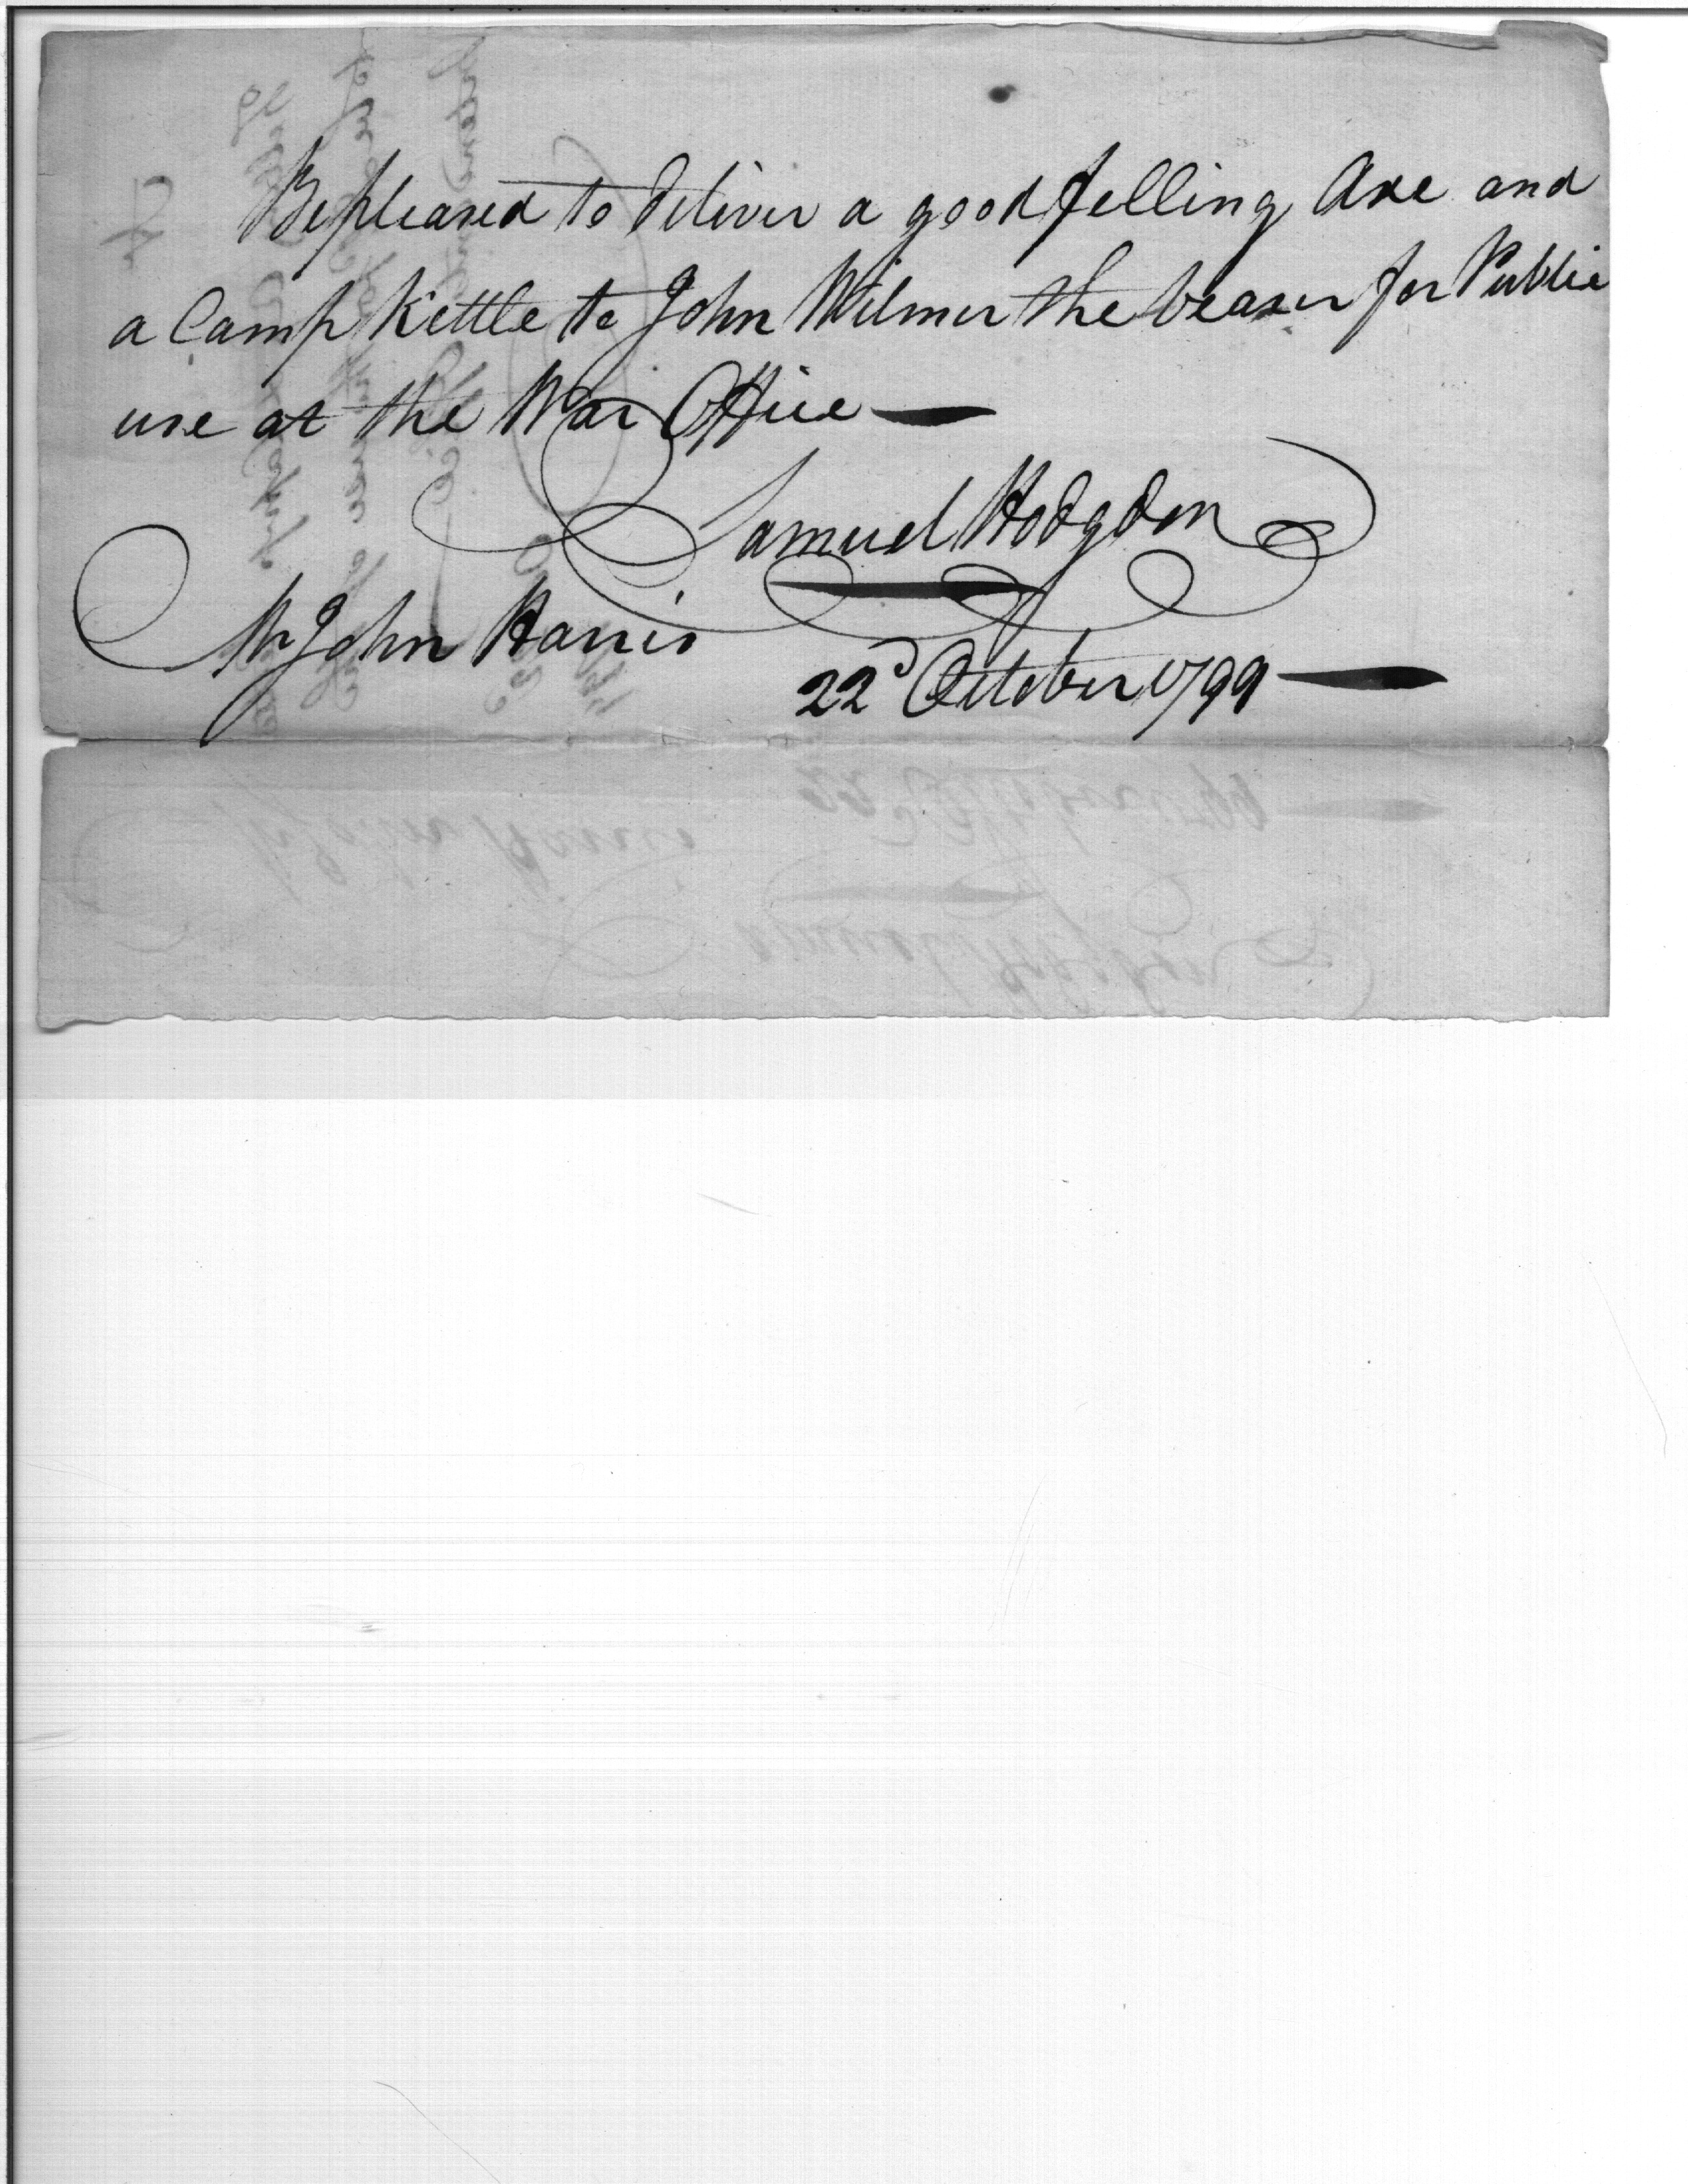 Be pleased to deliver a good felling Axe and
a Camp Kettle to John Wilmer the bearer for Public
use at the War Office —
Samuel Hodgdon
Mr John Harris
22d October 1799 —